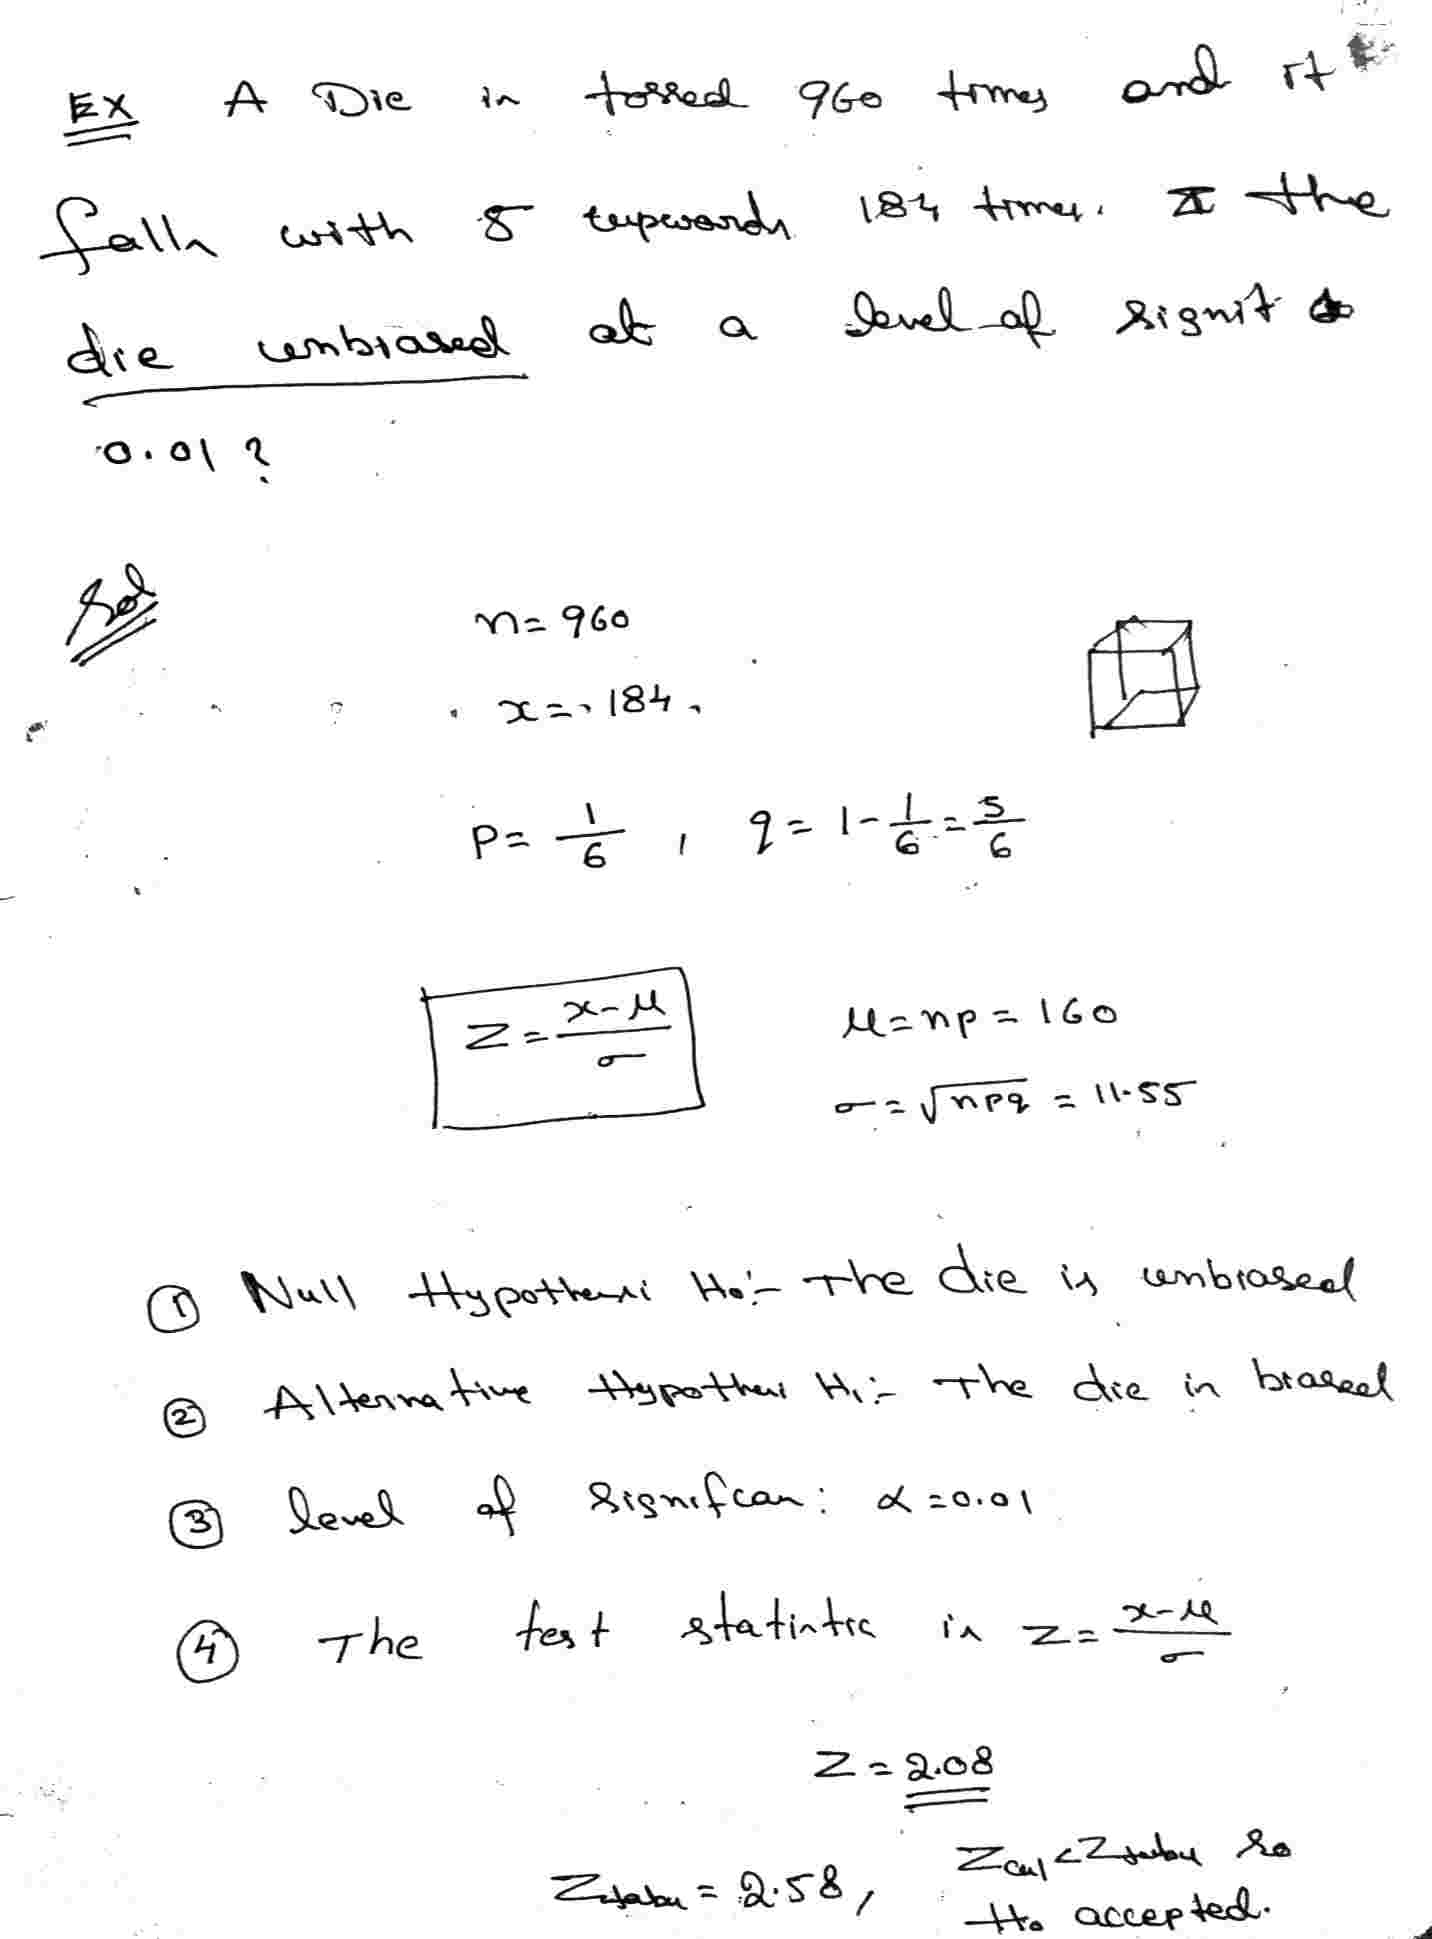 EX A Die is tossed 960 times and it
falls with 5 upwards 184 times. I the
die unbiased at a level of signit
0.01?
Sol
n = 960
x = 184,
P = 1/6 , q = 1 - 1/6 = 5/6
Z = (x-μ)/σ μ = np = 160
σ = √npq = 11.55
① Null Hypothesi H₀:- The die is unbiased
② Alternative Hypothesi H₁:- The die is biased
③ level of Signifcan: α = 0.01
④ The test statistic is Z = (x-μ)/σ
Z = 2.08
Ztabu = 2.58, Zcal < Ztabu so
H₀ accepted.